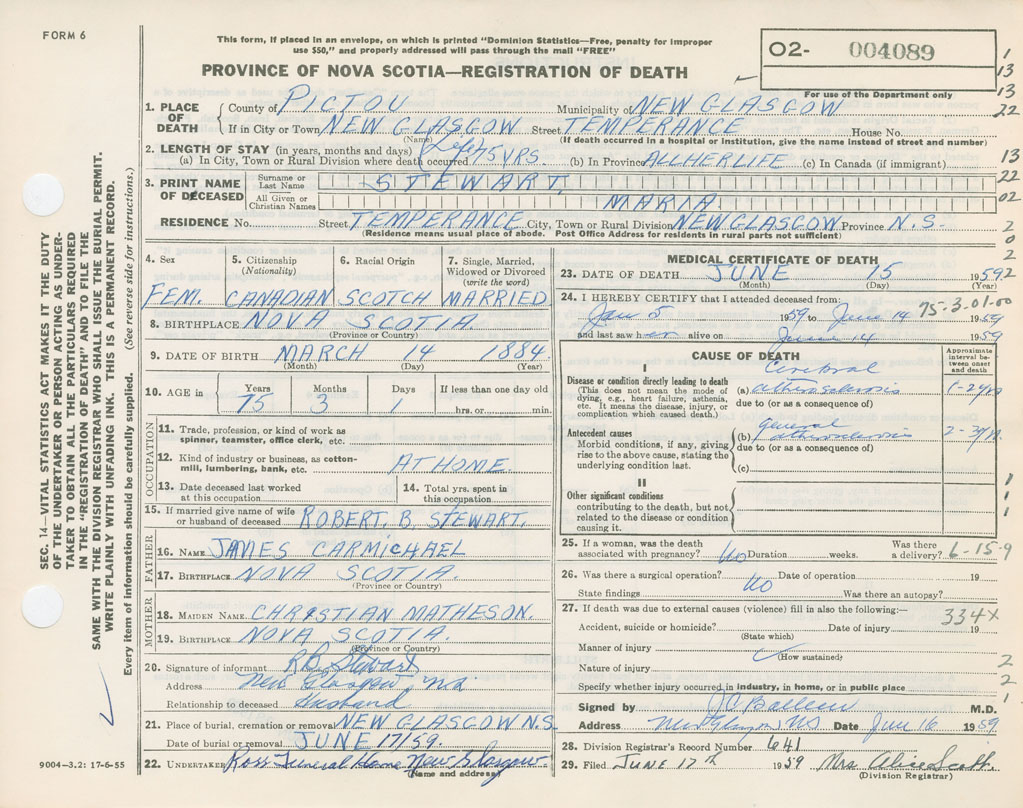 FORM 6
This form, if placed in an envelope, on which is printed "Dominion Statistics—Free, penalty for improper
use $50," and properly addressed will pass through the mail "FREE"
PROVINCE OF NOVA SCOTIA—REGISTRATION OF DEATH
02- 004089
For use of the Department only
1
13
13
22
13
22
02
2
0
2
2
1. PLACE OF DEATH County of PICTOU Municipality of NEW GLASGOW
If in City or Town NEW GLASGOW Street TEMPERANCE House No.
(Name) (If death occurred in a hospital or institution, give the name instead of street and number)
2. LENGTH OF STAY (in years, months and days) Life
(a) In City, Town or Rural Division where death occurred 75 YRS. (b) In Province ALL HER LIFE (c) In Canada (if immigrant)
3. PRINT NAME OF DECEASED Surname or Last Name STEWART,
All Given or Christian Names MARIA
RESIDENCE No. Street TEMPERANCE City, Town or Rural Division NEW GLASGOW Province N.S.
(Residence means usual place of abode. Post Office Address for residents in rural parts not sufficient)
4. Sex 5. Citizenship (Nationality) 6. Racial Origin 7. Single, Married, Widowed or Divorced (write the word)
FEM. CANADIAN SCOTCH MARRIED
8. BIRTHPLACE NOVA SCOTIA
(Province or Country)
9. DATE OF BIRTH MARCH 14 1884
(Month) (Day) (Year)
10. AGE in Years Months Days If less than one day old
75 3 1 hrs. or min.
OCCUPATION
11. Trade, profession, or kind of work as
spinner, teamster, office clerk, etc.
12. Kind of industry or business, as cotton-
mill, lumbering, bank, etc. AT HOME.
13. Date deceased last worked
at this occupation
14. Total yrs. spent in
this occupation
15. If married give name of wife
or husband of deceased ROBERT. B. STEWART.
FATHER
16. NAME JAMES CARMICHAEL
17. BIRTHPLACE NOVA SCOTIA.
(Province or Country)
MOTHER
18. MAIDEN NAME CHRISTIAN MATHESON.
19. BIRTHPLACE NOVA SCOTIA.
(Province or Country)
20. Signature of informant R B Stewart
Address New Glasgow, N.S.
Relationship to deceased Husband
21. Place of burial, cremation or removal NEW GLASGOW N.S.
Date of burial or removal JUNE 17/59.
22. UNDERTAKER Ross Funeral Home New Glasgow
(Name and address)
MEDICAL CERTIFICATE OF DEATH
23. DATE OF DEATH JUNE 15 1959
(Month) (Day) (Year)
24. I HEREBY CERTIFY that I attended deceased from: 75-3.01.00
Jan 5 1959 to June 14 1959
and last saw her alive on June 14 1959
CAUSE OF DEATH
Approximate interval between onset and death
I
Disease or condition directly leading to death
(This does not mean the mode of
dying, e.g., heart failure, asthenia,
etc. It means the disease, injury, or
complication which caused death.)
Cerebral
(a) atherosclerosis 1-2 yrs
due to (or as a consequence of)
Antecedent causes
Morbid conditions, if any, giving
rise to the above cause, stating the
underlying condition last.
General
(b) atherosclerosis 2-3 yrs
due to (or as a consequence of)
(c)
II
Other significant conditions
contributing to the death, but not
related to the disease or condition
causing it.
1
1
1
25. If a woman, was the death
associated with pregnancy? No Duration weeks. Was there a delivery? 6-15-9
26. Was there a surgical operation? No Date of operation 19
State findings Was there an autopsy?
27. If death was due to external causes (violence) fill in also the following:— 334X
Accident, suicide or homicide? Date of injury 19
(State which)
Manner of injury
(How sustained)
Nature of injury
Specify whether injury occurred in industry, in home, or in public place
2
2
1
Signed by M.D.
Address New Glasgow NS Date June 16 1959
28. Division Registrar's Record Number 641
29. Filed JUNE 17th 1959 Mrs Alice Scott.
(Division Registrar)
SEC. 14—VITAL STATISTICS ACT MAKES IT THE DUTY
OF THE UNDERTAKER OR PERSON ACTING AS UNDER-
TAKER TO OBTAIN ALL THE PARTICULARS REQUIRED
IN THE "REGISTRATION OF DEATH" AND TO FILE THE
SAME WITH THE DIVISION REGISTRAR WHO SHALL ISSUE THE BURIAL PERMIT.
WRITE PLAINLY WITH UNFADING INK. THIS IS A PERMANENT RECORD.
Every item of information should be carefully supplied. (See reverse side for instructions.)
9004-3.2: 17-6-55